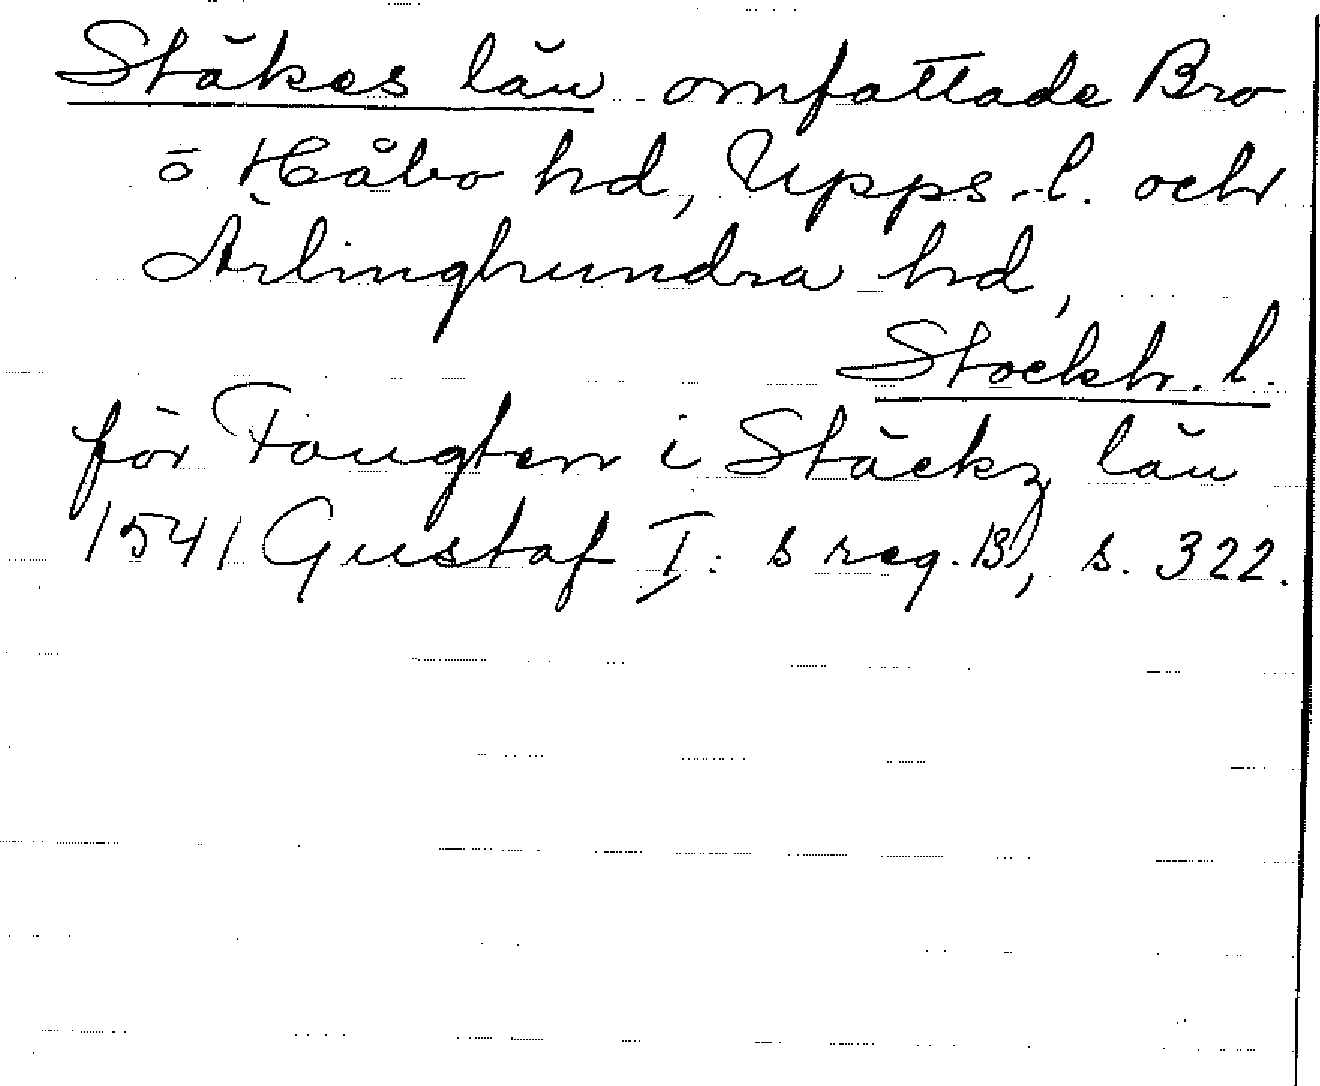 Stäkes län omfattade Bro
o Håbo hd, Upps. l. och
Ärlinghundra hd,
Stockh. l.
för Fougten i Stäckz län
1541 Gustaf I: s reg. 13, s. 322.